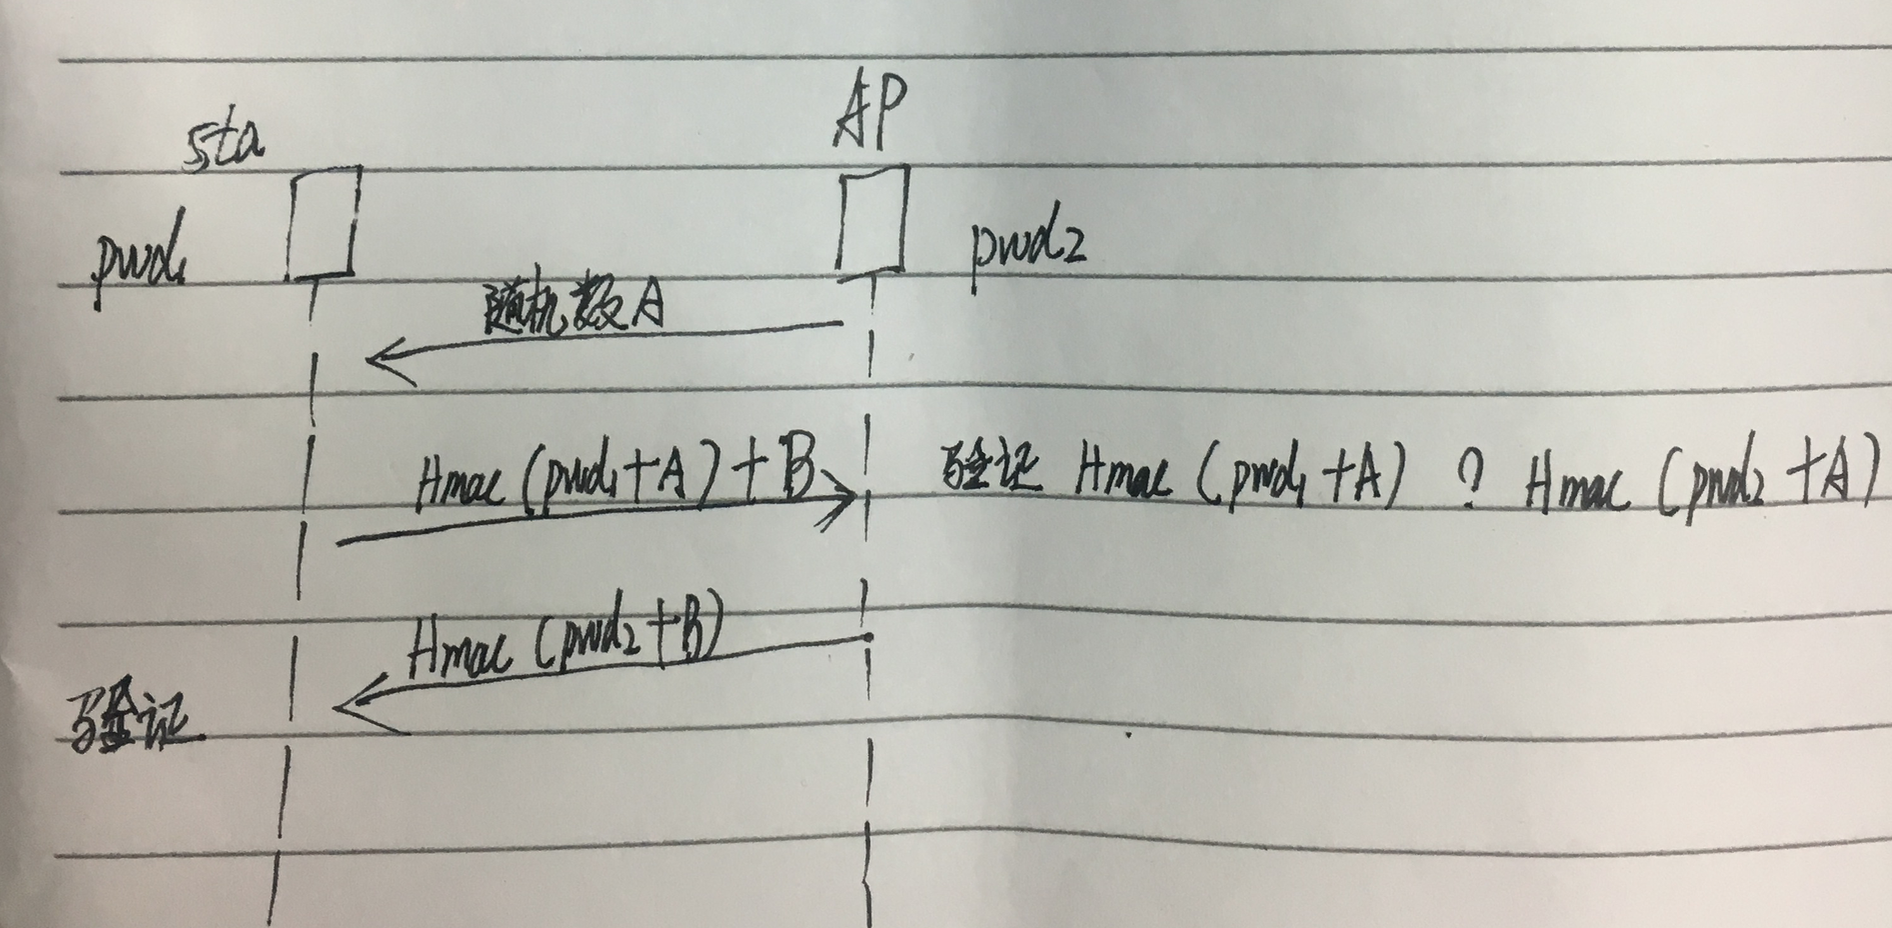 sta
AP
pwd1
pwd2
随机数A
Hmac (pwd1+A) + B
验证 Hmac (pwd1 +A) ? Hmac (pwd2 +A)
Hmac (pwd2+B)
验证